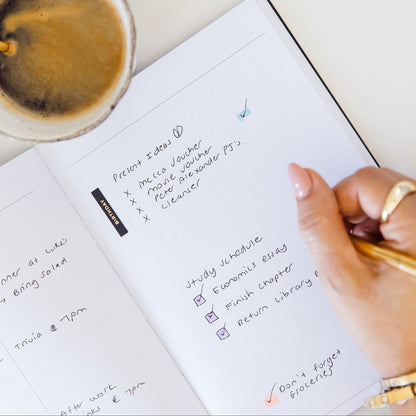 nner at Luke's
Bring salad
Trivia @ 7pm
After work
ks @ 7pm
Present Ideas
BIRTHDAY
x mecca voucher
x movie voucher
x Peter Alexander PJ's
x cleanser
Study schedule
Economics essay
Finish chapter
Return Library
Don't forget
groceries